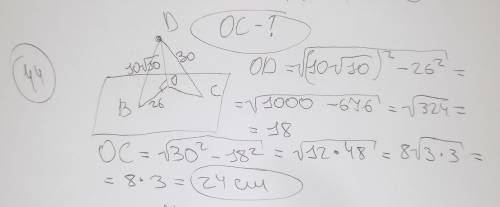 44
OC - ?
D
10√10
30
O
B
26
C
OD = √((10√10)² - 26²) =
= √(1000 - 676) = √324 =
= 18
OC = √(30² - 18²) = √(12 • 48) = 8√(3 • 3) =
= 8 • 3 = 24 cm